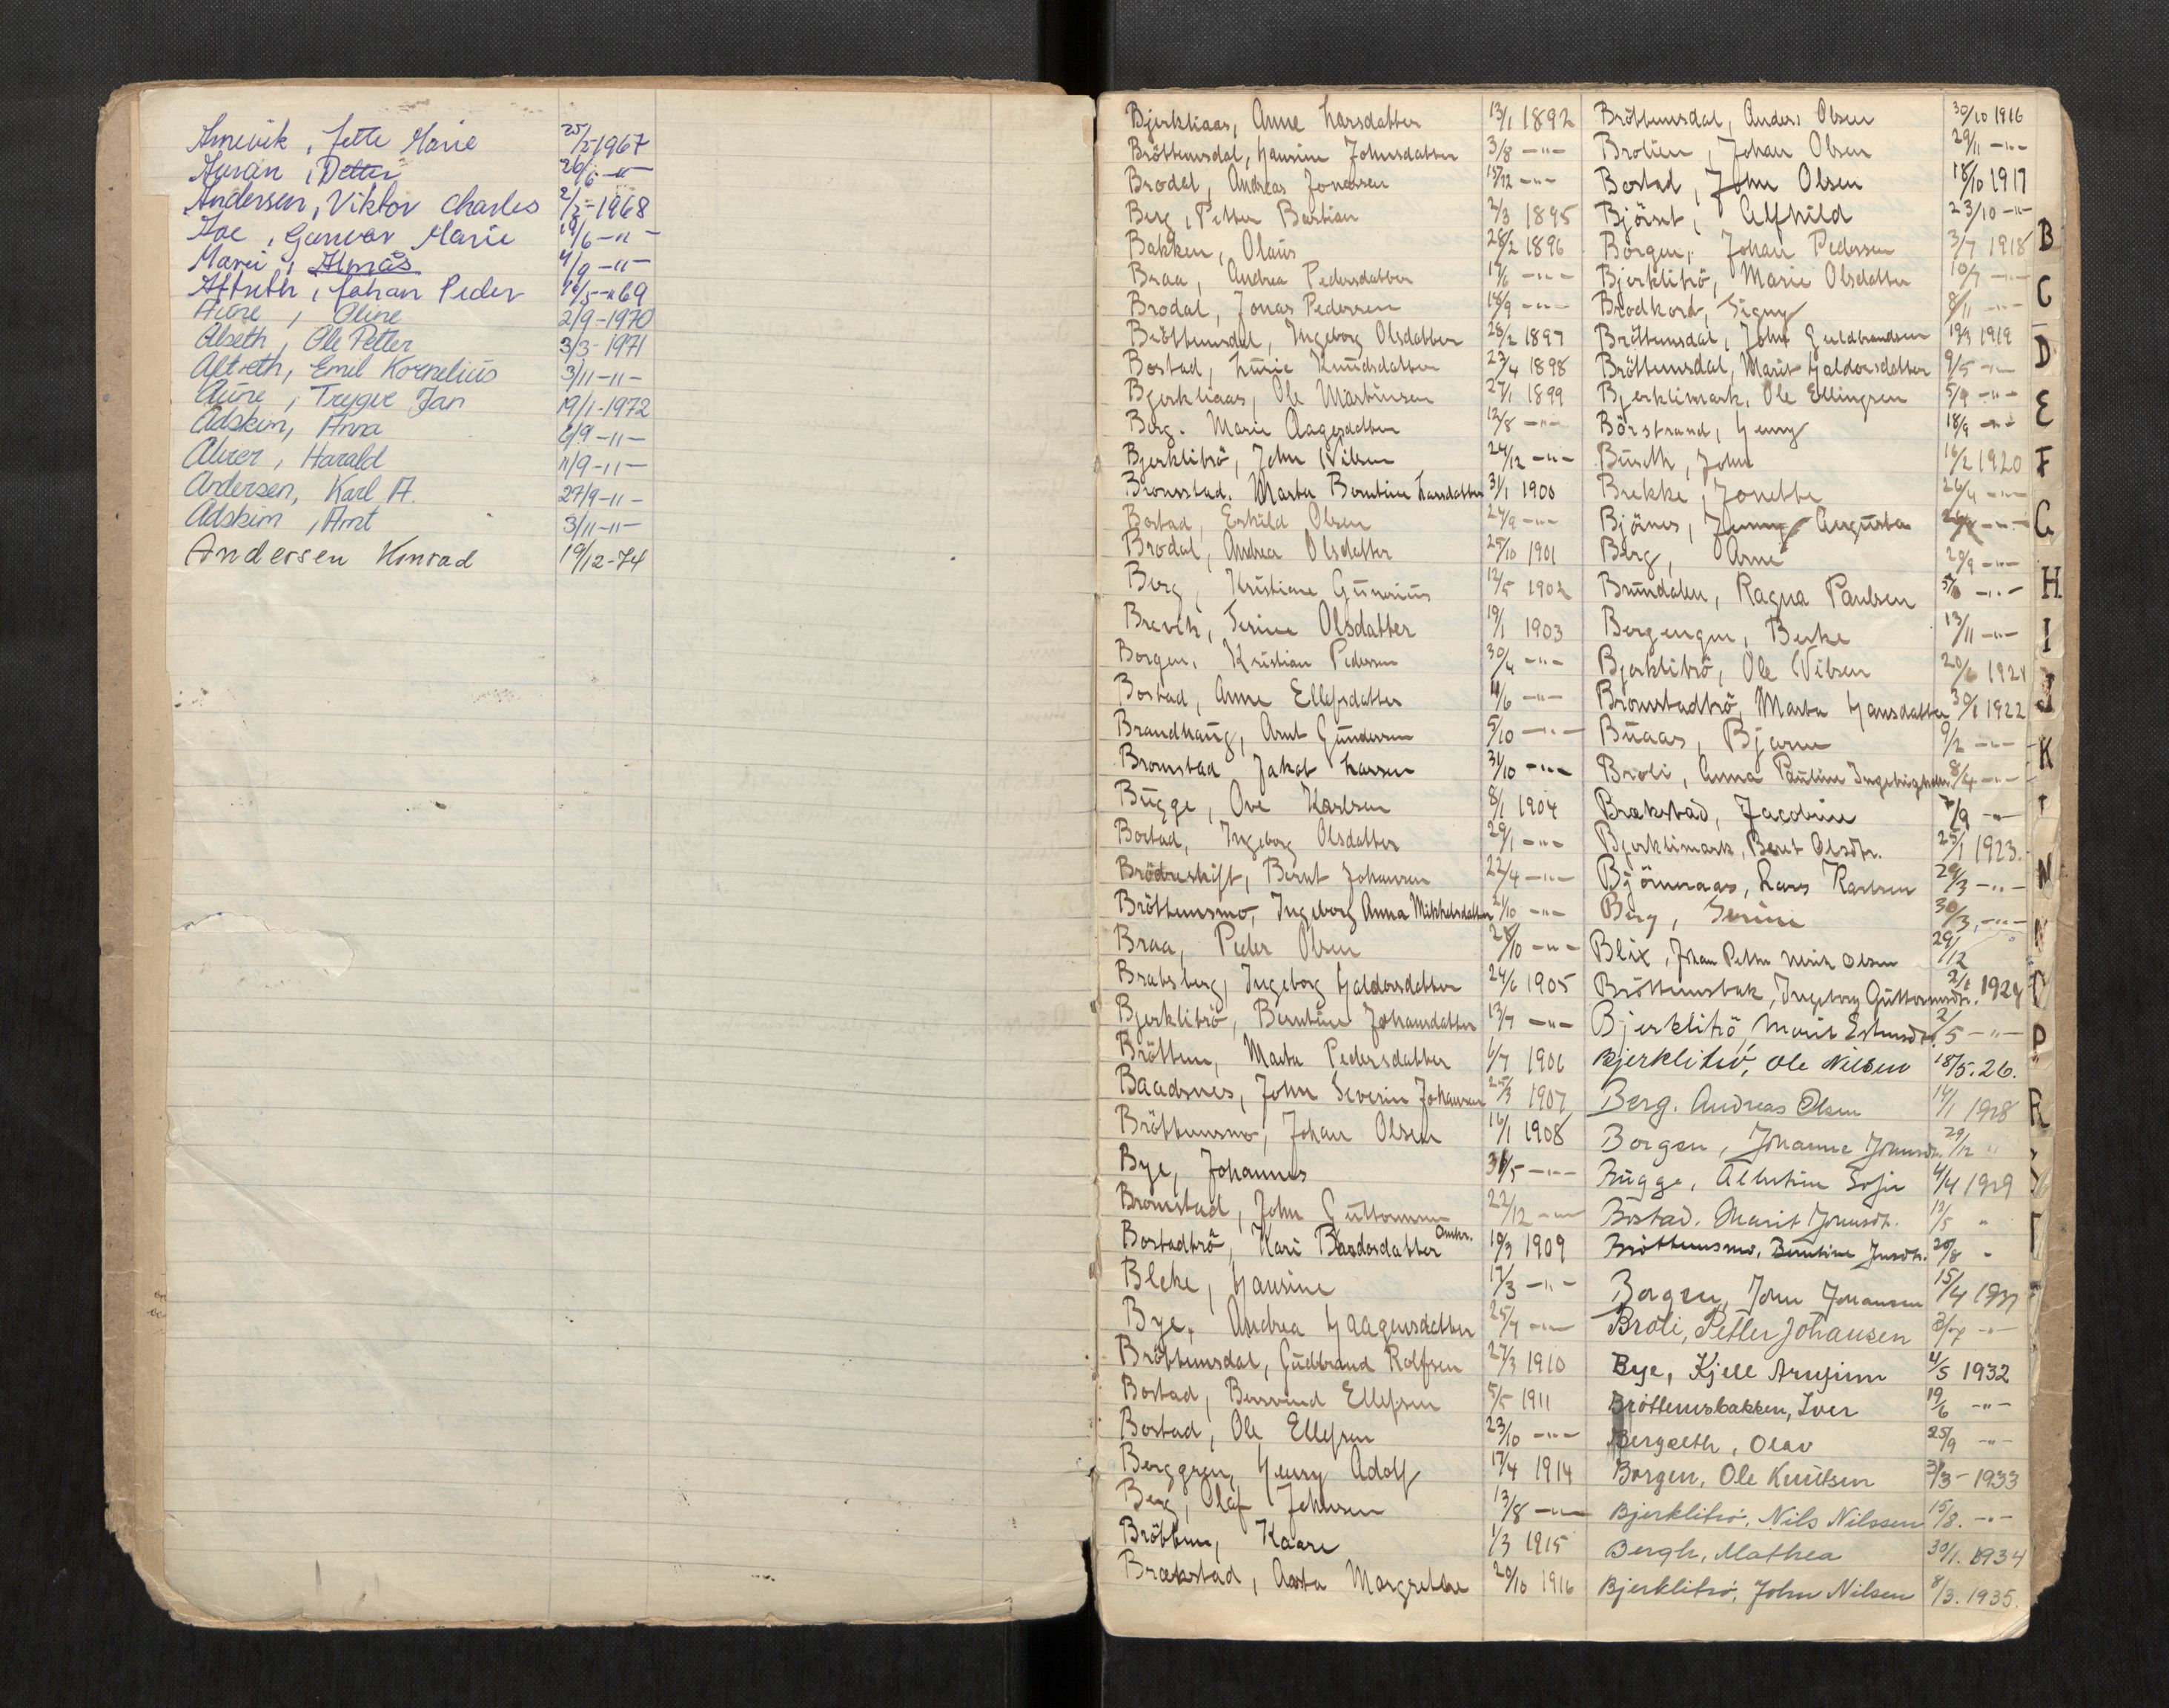 Arnevik, Jette Marie 25/5-1967
Auran, Petter 26/6 -"-
Andersen, Viktor Charles 2/5-1968
Aae, Gunvor Marie 19/6 -"-
Marei, Almås 4/9 -"-
Aftreth, Johan Peder 16/5-"69
Aure, Oline 2/9-1970
Alseth, Ole Petter 3/3-1971
Aftreth, Emil Kornelius 3/11-"-
Aune, Trygve Jan 19/1-1972
Adskim, Anna 6/9-"-
Alver, Harald 11/9-"-
Andersen, Karl A. 27/9-"-
Adskim, Arnt 3/11-"-
Andersen Konrad 19/12-74
Bjerkliaas, Anne Larsdatter 13/1 1892
Bröttemsdal, Hansine Johnsdatter 3/8 -"-
Brodal, Andreas Jonassen 15/12 -"-
Berg, Petter Bastian 2/3 1895
Bakken, Olaus 28/2 1896
Braa, Andrea Pedersdatter 17/6 -"-
Brodal, Jonas Pedersen 18/9 -"-
Bröttemsdal, Ingeborg Olsdatter 28/2 1897
Bostad, Lurie Knudsdatter 23/4 1898
Bjerkliaas, Ole Martinsen 27/1 1899
Berg. Marie Aagesdatter 12/8 -"-
Bjerklitrö, John Nilsen 24/12 -"-
Bromstad. Marta Berntine Larsdatter 31/1 1900
Bostad, Eskild Olsen 24/9 -"-
Brodal, Andrea Olsdatter 25/10 1901
Berg, Kristiane Gunerius 12/5 1902
Brevik, Serine Olsdatter 19/1 1903
Borgen, Kristian Pedersen 30/4 -"-
Bostad, Anne Ellefsdatter 11/6 -"-
Brandhaug, Arnt Gundersen 5/10 -"-
Bromstad Jakob Larsen 31/10 -"-
Bugge, Ove Karlsen 8/1 1904
Bostad, Ingeborg Olsdatter 29/1 -"-
Brödreskift, Bernt Johansen 22/4 -"-
Bröttemsmo, Ingeborg Anna Mikkelsdatter 21/10 -"-
Braa, Peder Olsen 28/10 -"-
Bratsberg, Ingeborg Haldorsdatter 24/6 1905
Bjerklitrö, Berntine Johansdatter 13/7 -"-
Bröttem, Marta Pedersdatter 6/7 1906
Baadsnes, John Severin Johansen 25/3 1907
Bröttemsmo, Johan Olsen 16/1 1908
Bye, Johannes 31/5 -"-
Bromstad, John Guttormsen 22/12 -"-
Bostadtrö, Kari Bardosdatter Omkr. 19/3 1909
Bleke, Hansine 17/3 -"-
Bye, Andrea Haagensdatter 25/7 -"-
Bröttemsdal, Gudbrand Rolfsen 27/3 1910
Bostad, Bersvend Ellefsen 5/5 1911
Bostad, Ole Ellefsen 23/10 -"-
Berggren, Henry Adolf 17/4 1914
Berg, Olaf Johnsen 13/8 -"-
Bröttem, Kaare 1/3 1915
Brækstad, Asta Margrethe 20/10 1916
Bröttemsdal, Anders Olsen 30/10 1916
Brolien, Johan Olsen 29/11 -"-
Bostad, John Olsen 18/10 1917
Bjørset, Alfhild 23/10 -"-
Borgen, Johan Pedersen 3/7 1918
Bjerklitrö, Marie Olsdatter 10/7 -"-
Brodkord, Signy 8/11 -"-
Bröttemsdal, John Guldbrandsen 19/3 1919
Bröttemsdal, Marit Haldorsdatter 9/5 -"-
Bjerklimark, Ole Ellingsen 5/9 -"-
Börstrand, Henny 18/9 -"-
Buseth, John 16/2 1920
Brekke, Jonette 26/4 -"-
Bjönes, Jenny Augusta -"-
Berg, Arne 20/9 -"-
Brundalen, Ragna Paulsen -"-
Bergengen, Berke 13/11 -"-
Bjerklitrö, Ole Nilsen 20/6 1921
Bromstadtrö, Marta Hansdatter 30/1 1922
Buaas, Bjarne 9/2 -"-
Broli, Anna Pauline Ingebrigtsdtr 8/4 -"-
Brækstad, Jacobine 7/9 -"-
Bjerklimark, Beret Olsdtr. 25/1 1923.
Björnraas, Lars Karlsen 20/3 -"-
Berg, Serine 30/3, -"-
Blix, Johan Petter Ulrik Olsen 29/12 "
Bröttemsbak, Ingeborg Guttormsdtr. 2/1 1924
Bjerklitrö, Marit Estensdtr. 2/5 -"-
Bjerklitrö, Ole Nilsen 18/5. 26.
Berg. Andreas Olsen 14/1 1928
Borgen, Johanne Johnsdtr. 29/12 "
Bugge, Albertine Sofie 4/4 1929
Bostad. Marit Jonsdtr. 12/5 "
Bröttemsmo, Berntine Jensdtr. 20/8 "
Borgen, John Johansen 15/4 1931
Broli, Petter Johansen -"-
Bye, Kjell Arnfinn 4/5 1932
Bröttemsbakken, Iver 19/6 -"-
Bergseth, Olav 25/9 -"-
Borgen, Ole Knutsen 3/3- 1933
Bjerklitrö, Nils Nilssen 15/8. -"-
Bergh, Mathea 30/1. 1934
Bjerklitrö, John Nilsen 8/3. 1935.
B
C
D
E
F
G
H
I
J
K
N
O
P
R